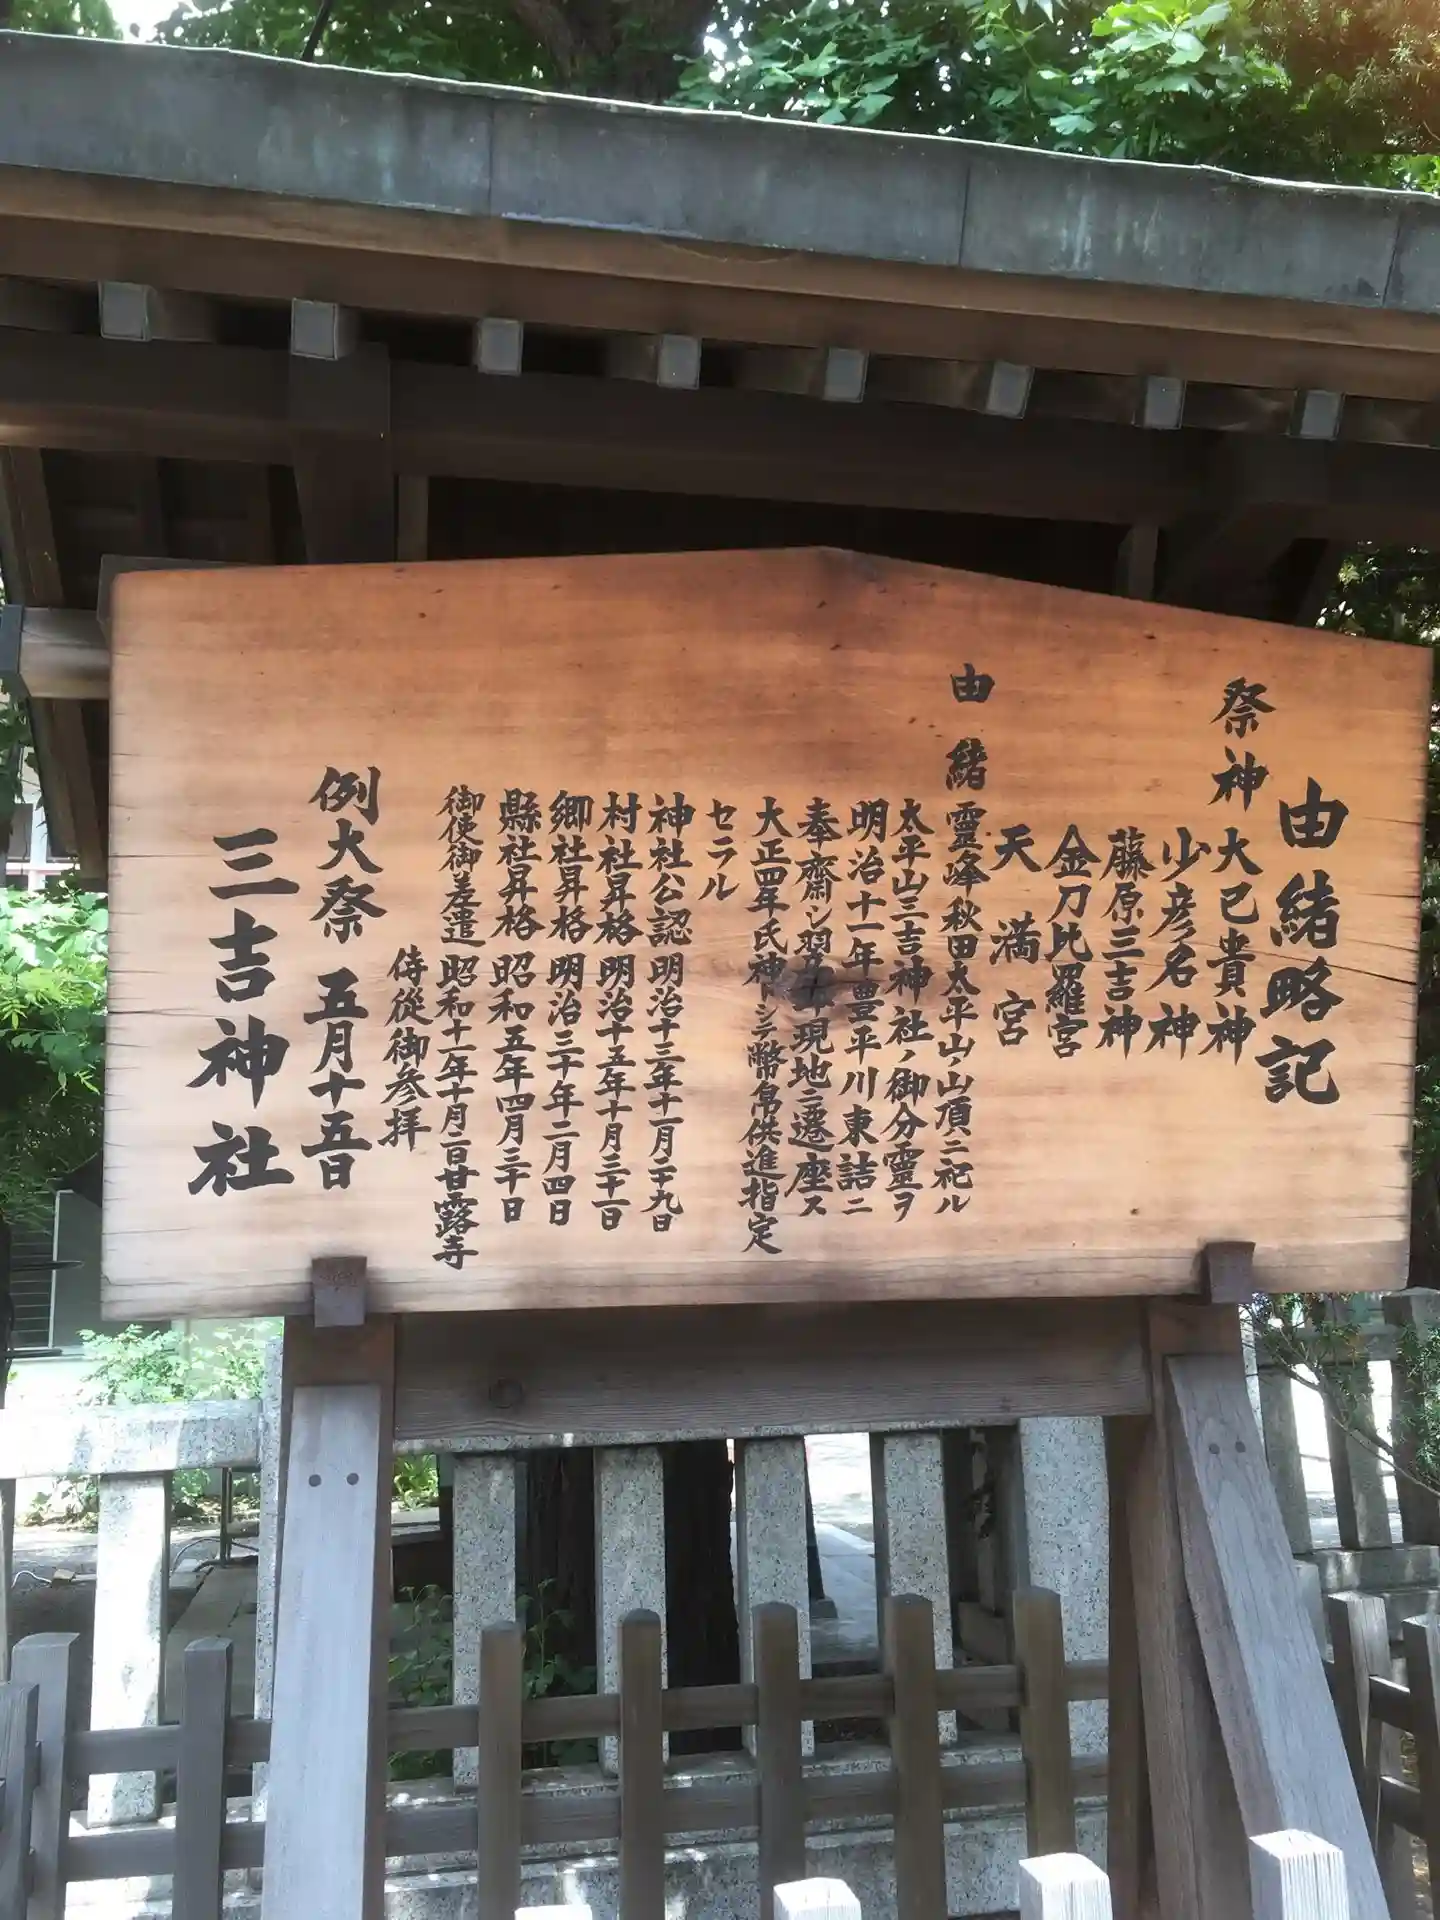 由緒略記
祭神 大己貴神
少彦名神
藤原三吉神
金刀比羅宮
天満宮
由緒 靈峰秋田太平山ノ山頂ニ祀ル
太平山三吉神社ノ御分靈ヲ
明治十一年豊平川東詰ニ
奉齋シ翌年現地ニ遷座ス
大正四年氏神トシテ幣帛供進指定
セラル
神社公認 明治十三年十一月二十九日
村社昇格 明治十五年十月三十一日
郷社昇格 明治三十年二月四日
縣社昇格 昭和五年四月三十日
御使御差遣 昭和十一年十月二日甘露寺
侍從御參拝
例大祭 五月十五日
三吉神社